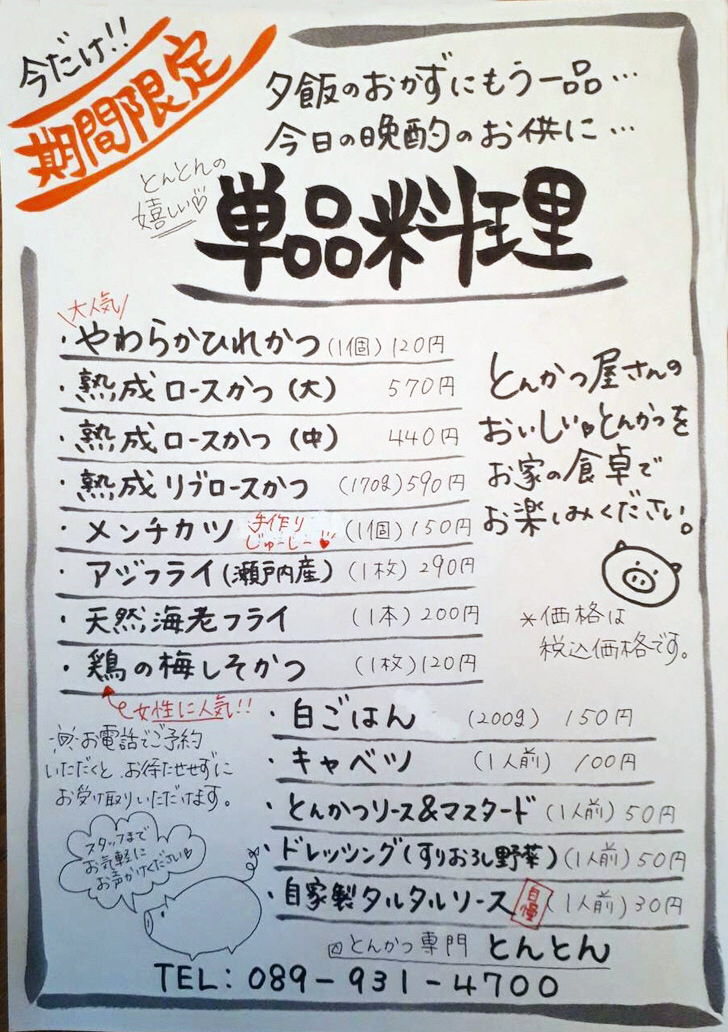 今だけ!!
期間限定
夕飯のおかずにもう一品…
今日の晩酌のお供に…
とんとんの
嬉しい♡
単品料理
大人気
・やわらかひれかつ(1個)120円
・熟成ロースかつ(大) 570円
・熟成ロースかつ(中) 440円
・熟成リブロースかつ(170g)590円
・メンチカツ 手作り じゅーしー♥(1個)150円
・アジフライ(瀬戸内産)(1枚)290円
・天然海老フライ (1本)200円
・鶏の梅しそかつ (1枚)120円
女性に人気!!
とんかつ屋さんの
おいしい♥とんかつを
お家の食卓で
お楽しみください。
*価格は
税込価格です。
・白ごはん (200g) 150円
・キャベツ (1人前) 100円
・とんかつソース&マスタード(1人前)50円
・ドレッシング(すりおろし野菜)(1人前)50円
・自家製タルタルソース 自慢(1人前)30円
お電話でご予約
いただくと、お待たせせずに
お受け取りいただけます。
スタッフまで
お気軽に
お声かけください♡
@とんかつ専門 とんとん
TEL: 089-931-4700